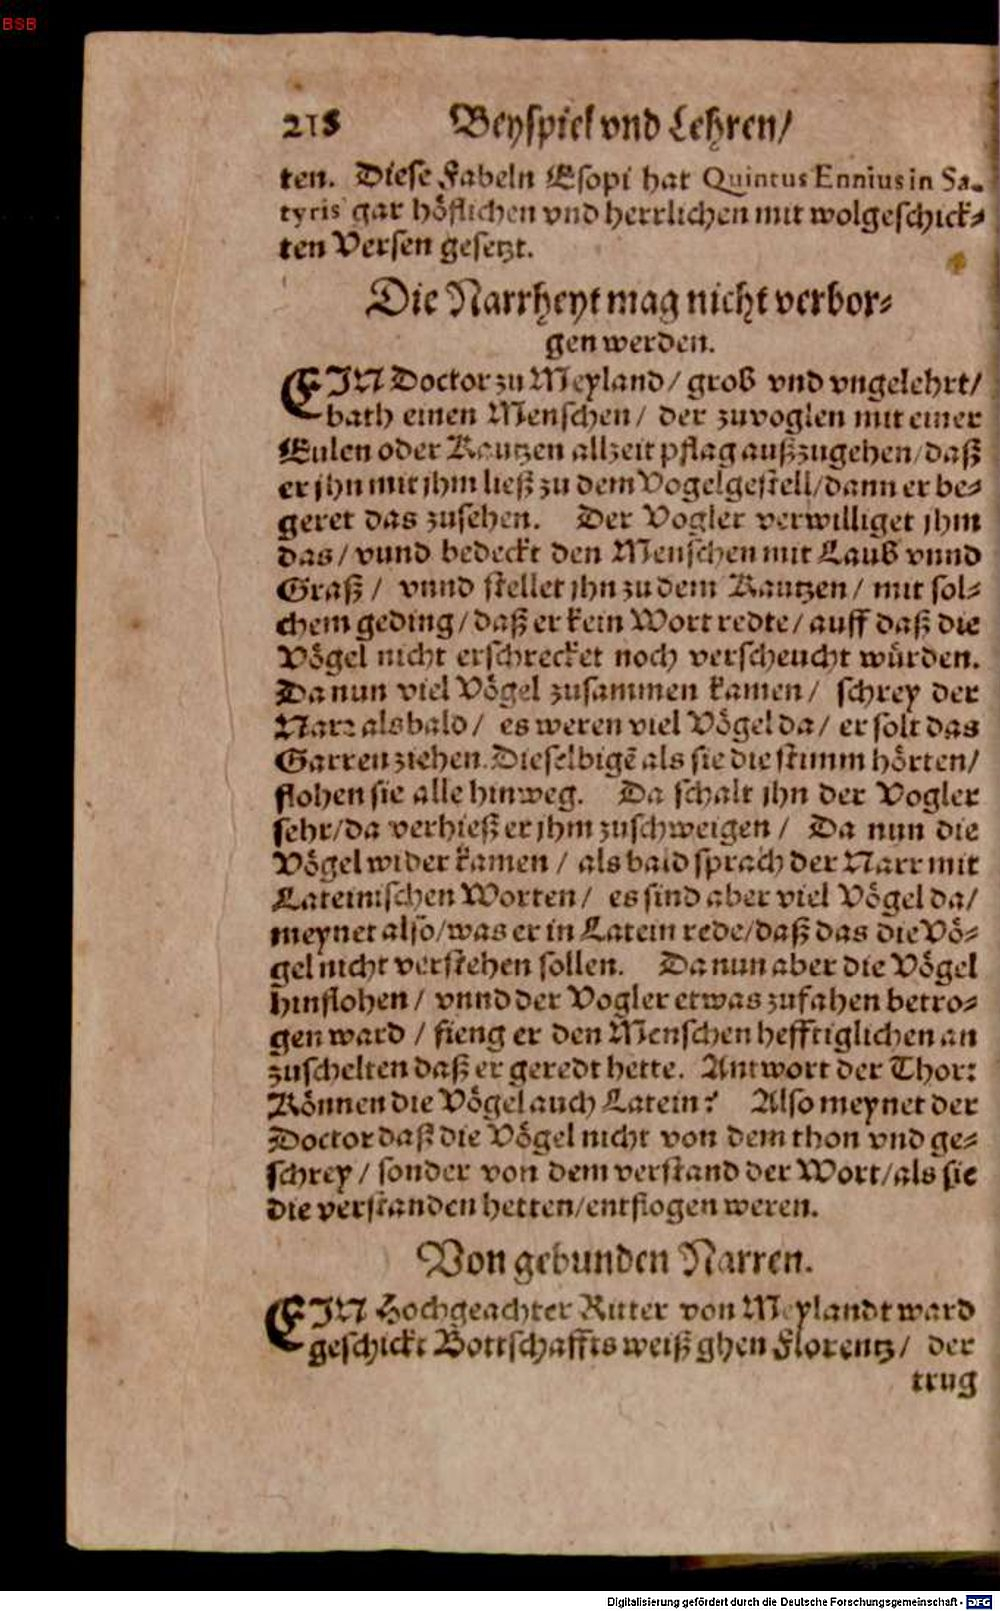 BSB
218 Beyspiel vnd Lehren/
ten. Diese Fabeln Esopi hat Quintus Ennius in Sa-
tyris gar höflichen vnd herrlichen mit wolgeschick-
ten Versen gesetzt.
Die Narrheyt mag nicht verbor-
gen werden.
EIN Doctor zu Meyland/ groß vnd vngelehrt/
bath einen Menschen/ der zuvoglen mit einer
Eulen oder Kautzen allzeit pflag außzugehen/daß
er jhn mit jhm ließ zu dem Vogelgestell/dann er be-
geret das zusehen. Der Vogler verwilliget jhm
das/ vnnd bedeckt den Menschen mit Laub vnnd
Graß/ vnnd stellet jhn zu dem Kautzen/ mit sol-
chem geding/daß er kein Wort redte/ auff daß die
Vögel nicht erschrecket noch verscheucht würden.
Da nun viel Vögel zusammen kamen/ schrey der
Narr alsbald/ es weren viel Vögel da/ er solt das
Garren ziehen. Dieselbigẽ als sie die stimm hörten/
flohen sie alle hinweg. Da schalt jhn der Vogler
sehr/da verhieß er jhm zuschweigen/ Da nun die
Vögel wider kamen/ als bald sprach der Narr mit
Lateinischen Worten/ es sind aber viel Vögel da/
meynet also/was er in Latein rede/daß das die Vö-
gel nicht verstehen sollen. Da nun aber die Vögel
hinflohen/ vnnd der Vogler etwas zufahen betro-
gen ward/ fieng er den Menschen hefftiglichen an
zuschelten daß er geredt hette. Antwort der Thor:
Können die Vögel auch Latein? Also meynet der
Doctor daß die Vögel nicht von dem thon vnd ge-
schrey/ sonder von dem verstand der Wort/als sie
die verstanden hetten/entflogen weren.
Von gebunden Narren.
EIN Hochgeachter Ritter von Meylandt ward
geschickt Bottschaffts weiß ghen Florentz/ der
trug
Digitalisierung gefördert durch die Deutsche Forschungsgemeinschaft - DFG